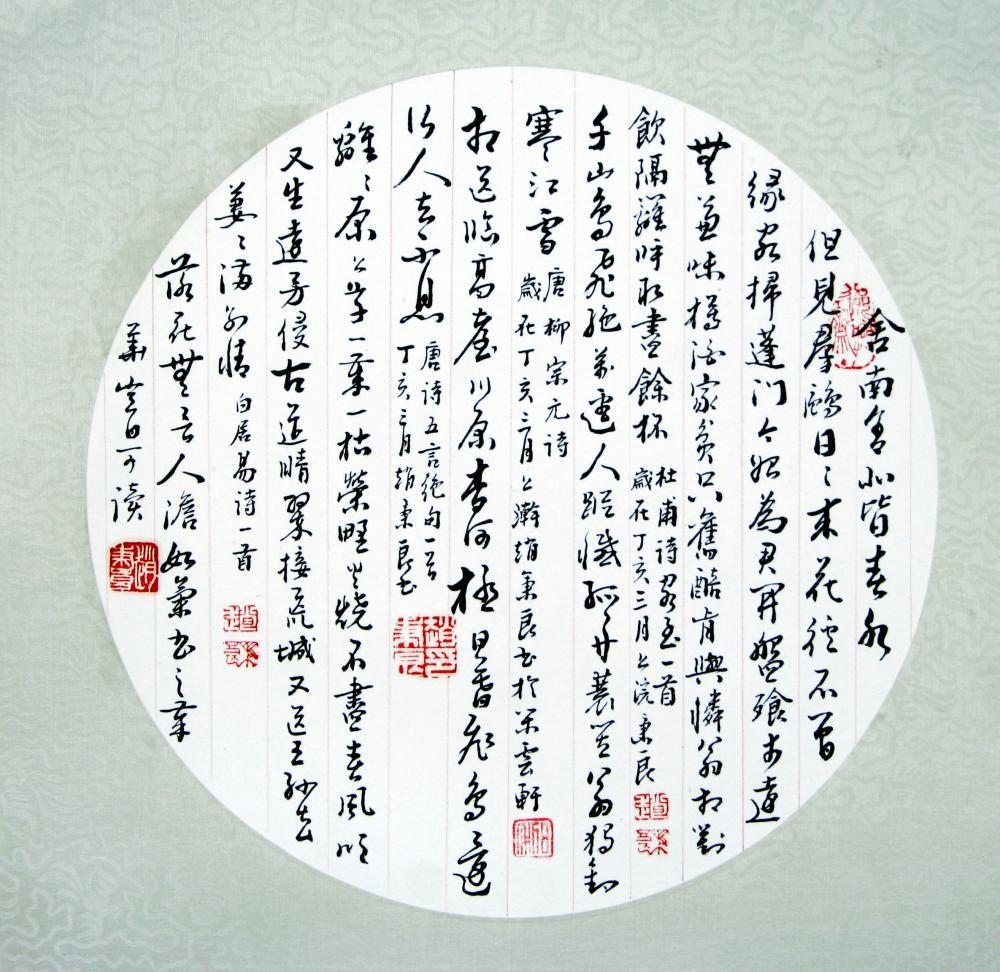 舍南舍北皆春水
但見羣鷗日〻來花徑不曾
緣客掃蓬門今始為君開盤飧市遠
無兼味樽酒家貧只舊醅肯與憐翁相對
飲隔籬呼取盡餘杯
杜甫詩客至一首
歲在丁亥三月上浣秉良
千山鳥飛絕萬逕人蹤滅孤舟蓑笠翁獨釣
寒江雪
唐柳宗元詩
歲在丁亥三月上澣趙秉良書於雲軒
相送臨高臺川原杳何極日暮飛鳥還
行人去不息
唐詩五言絕句一首
丁亥三月趙秉良書
離〻原上草一歲一枯榮野火燒不盡春風吹
又生遠芳侵古道晴翠接荒城又送王孫去
萋〻滿別情
白居易詩一首
落花無言人澹如菊書之歲
華其曰可讀